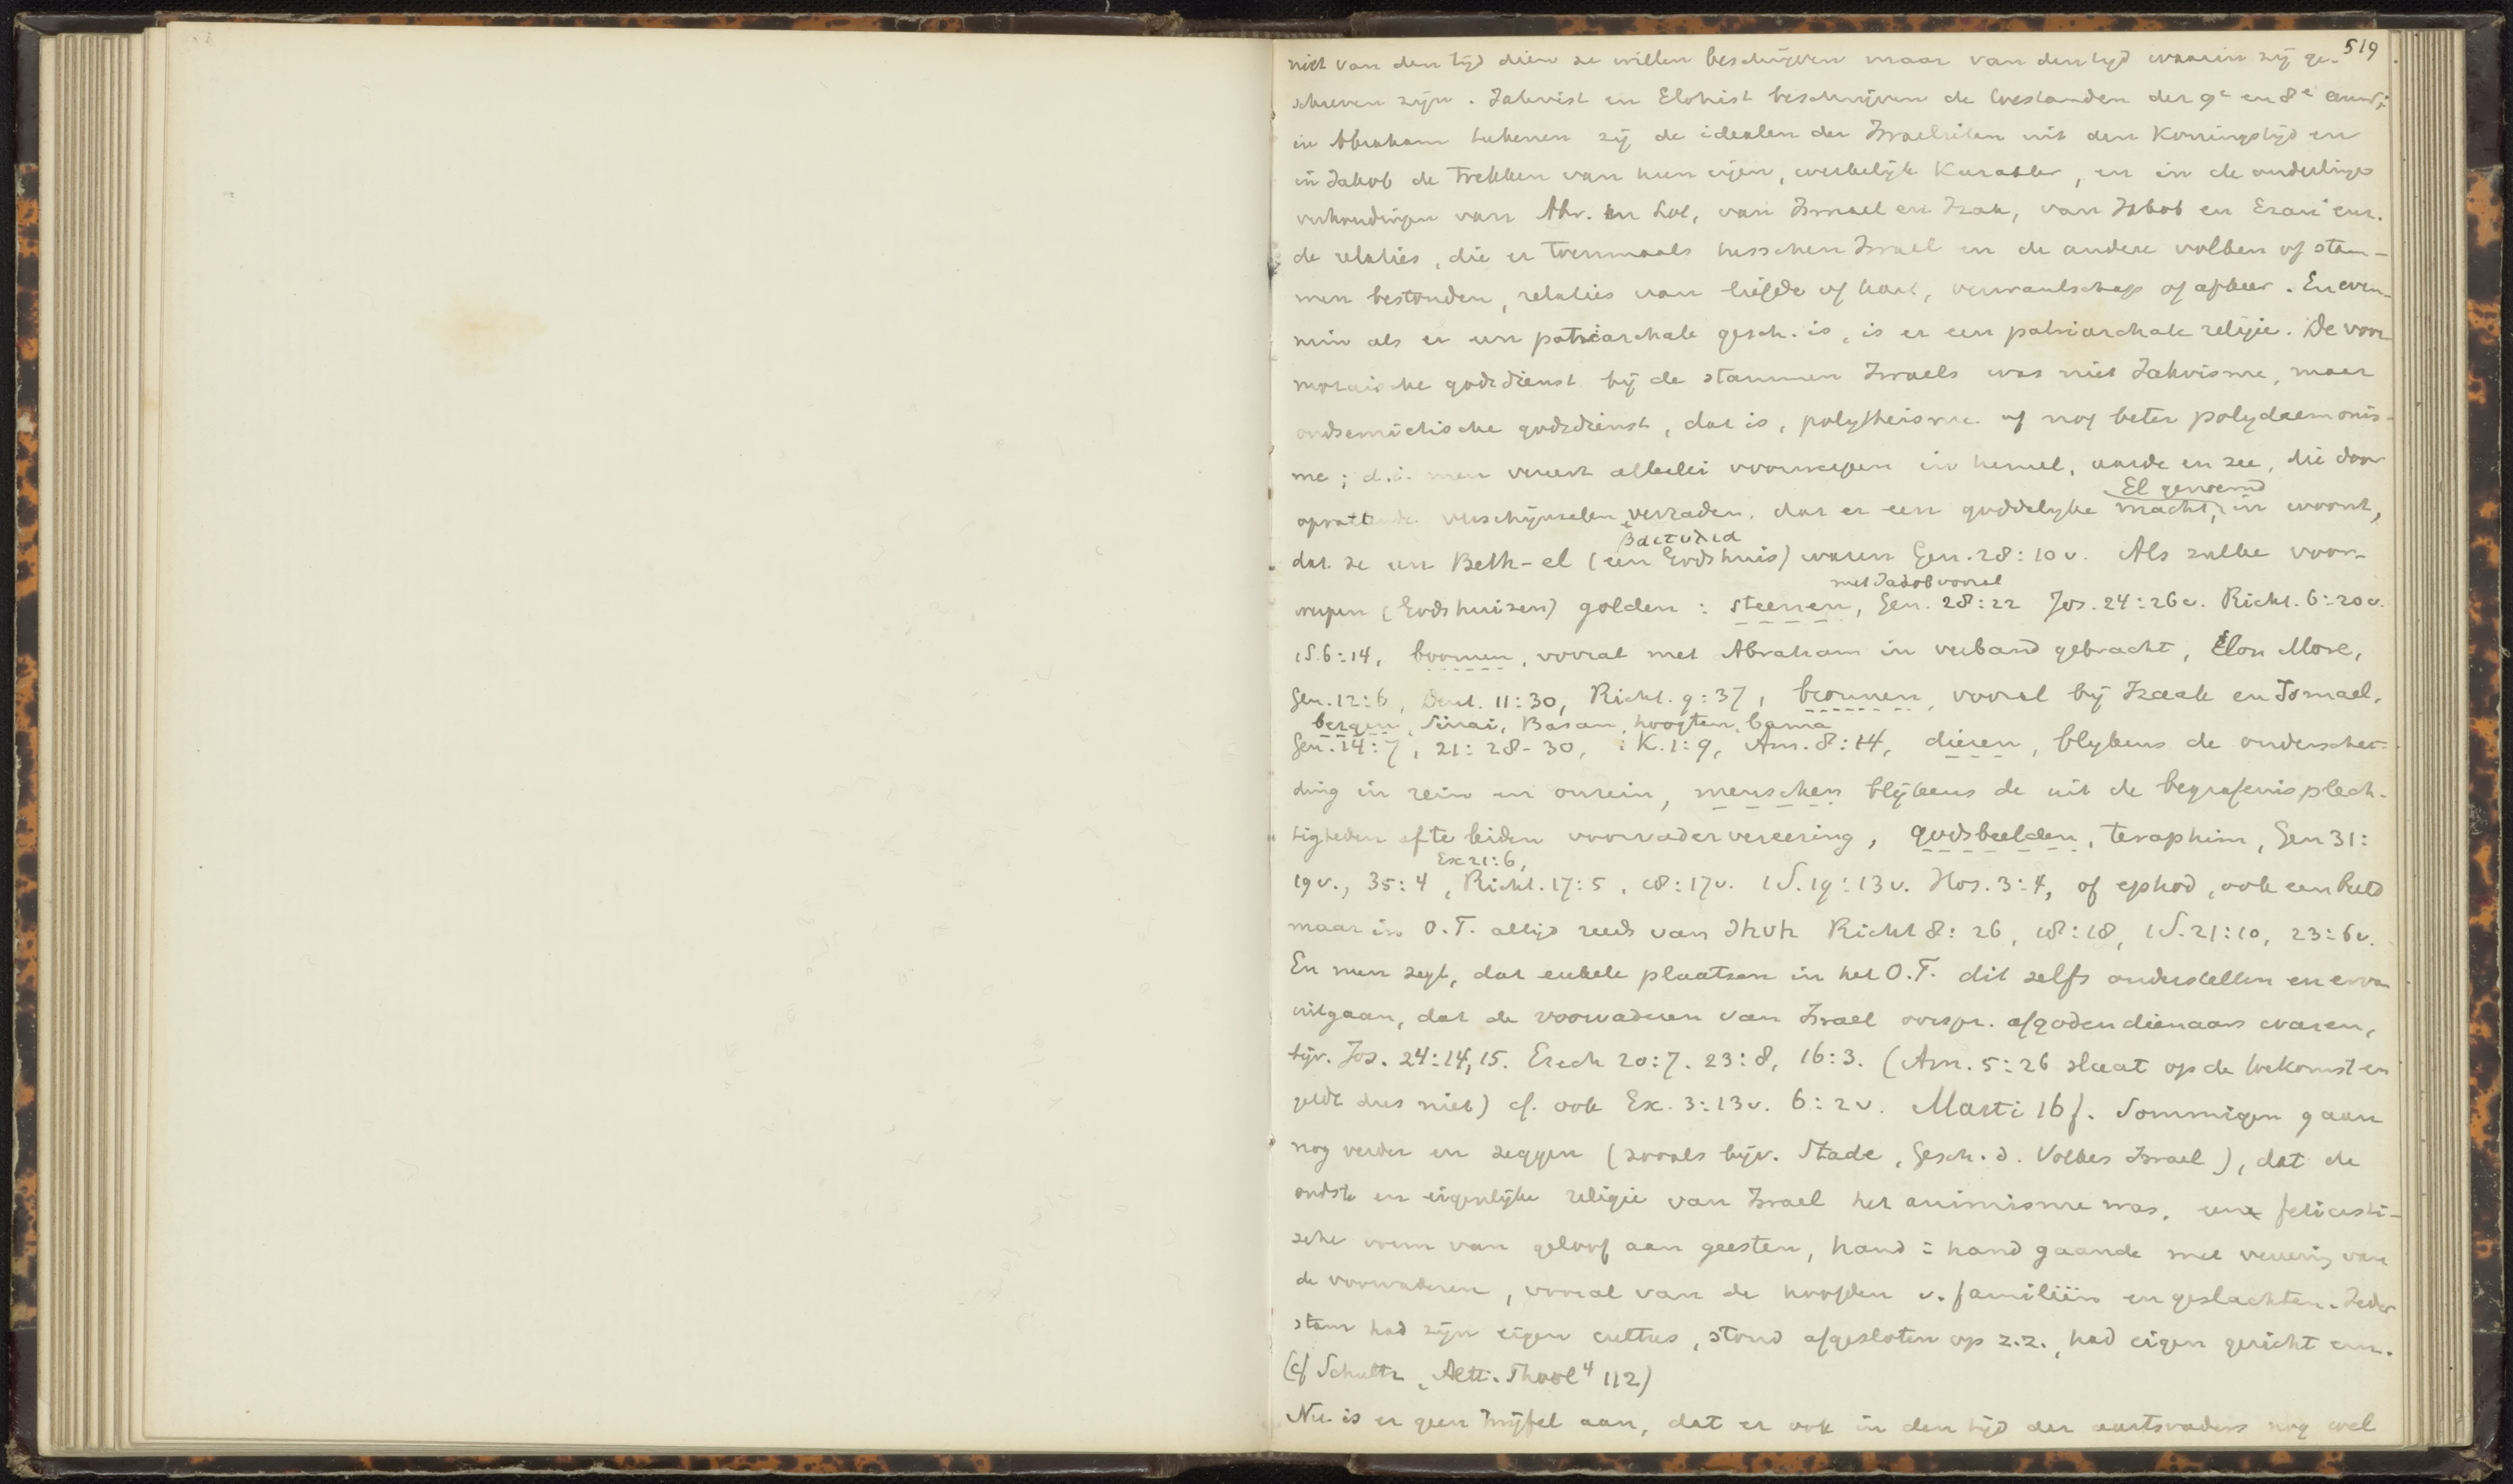 519
niet van den tijd dien ze willen beschrijven maar van den tijd waarin zij ge-
schreven zijn. Jahvist en Elohist beschrijven de toestanden der 9e en 8e eeuw;
in Abraham teekenen zij de idealen der Israelieten uit den Koningstijd en
in Jakob de trekken van hun eigen, werkelijk karakter, en in de onderlinge
verhoudingen van Abr. en Lot, van Ismael en Izak, van Jakob en Ezau enz.
de relaties, die er toenmaals tusschen Israel en de andere volken of stam-
men bestonden, relaties van liefde of haat, verwantschap of afkeer. En even-
min als er een patriarchale gesch. is, is er een patriarchale religie. De voor-
mozaische godsdienst bij de stammen Israels was niet Jahvisme, maar
oudsemietische godsdienst, dat is, polytheisme of nog beter polydaemonis-
me; d.i. men vereert allerlei voorwerpen in hemel, aarde en zee, die door
El genoemd
opvallende verschijnselen verraden, dat er een goddelijke macht, in woont,
βαιτυλια
dat ze een Beth-el (een Godshuis) waren Gen. 28:10v. Als zulke voor-
met Jakob vooral
werpen (Godshuizen) golden: steenen, Gen. 28:22 Jos. 24:26v. Richt. 6:20v.
1S.6:14, boomen, vooral met Abraham in verband gebracht, Elon More,
Gen. 12:6, Deut. 11:30, Richt. 9:37, bronnen, vooral bij Izaak en Ismael,
bergen, Sinai, Basan, hoogten, bama
Gen. 14:7, 21:28-30, 1 K.1:9, Am. 8:14, dieren, blijkens de onderschei-
ding in rein en onrein, menschen blijkens de uit de begrafenisplech-
tigheden af te leiden voorvadervereering, godsbeelden, teraphim, Gen 31:
Ex 21:6,
19v., 35:4, Richt. 17:5, 18:17v. 1S.19:13v. Hos. 3:4, of ephod, ook een beeld
maar in O.T. altijd reeds van Jhvh Richt 8:26, 18:18, 1S.21:10, 23:6v.
En men zegt, dat enkele plaatsen in het O.T. dit zelfs onderstellen en ervan
uitgaan, dat de voorvaderen van Israel oorspr. afgodendienaars waren,
bijv. Jos. 24:14,15. Ezech 20:7. 23:8, 16:3. (Am. 5:26 slaat op de toekomst en
geldt dus niet) cf. ook Ex. 3:13v. 6:2v. Marti 16f. Sommigen gaan
nog verder en zeggen (zooals bijv. Stade, Gesch. d. Volkes Israel), dat de
oudste en eigenlijke religie van Israel het animisme was, een feticisti-
sche vorm van geloof aan geesten, hand = hand gaande met vereering van
de voorvaderen, vooral van de hoofden v. familiën en geslachten. Ieder
stam had zijn eigen cultus, stond afgesloten op z.z., had eigen gericht enz.
(cf Schultz, Altt. Theol 4 112)
Nu is er geen twijfel aan, dat er ook in den tijd der aartsvaders nog wel